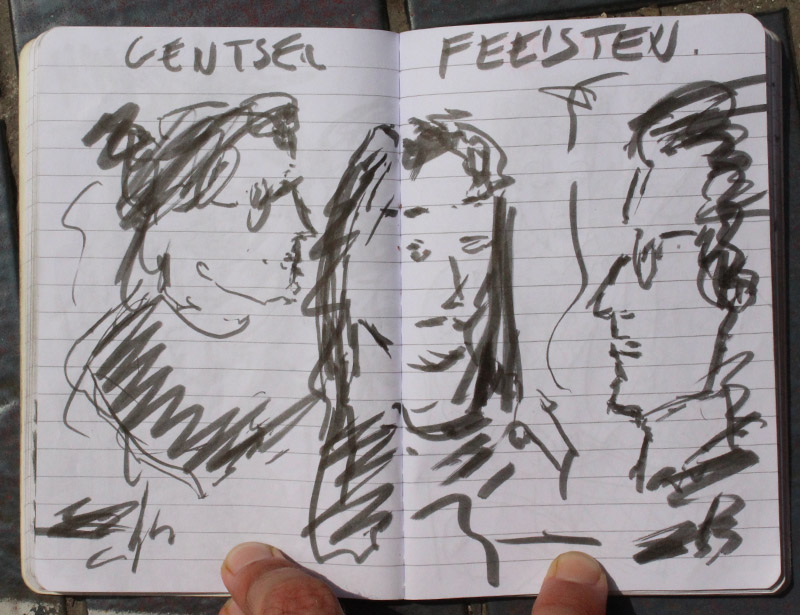 GENTSE FEEISTEN.